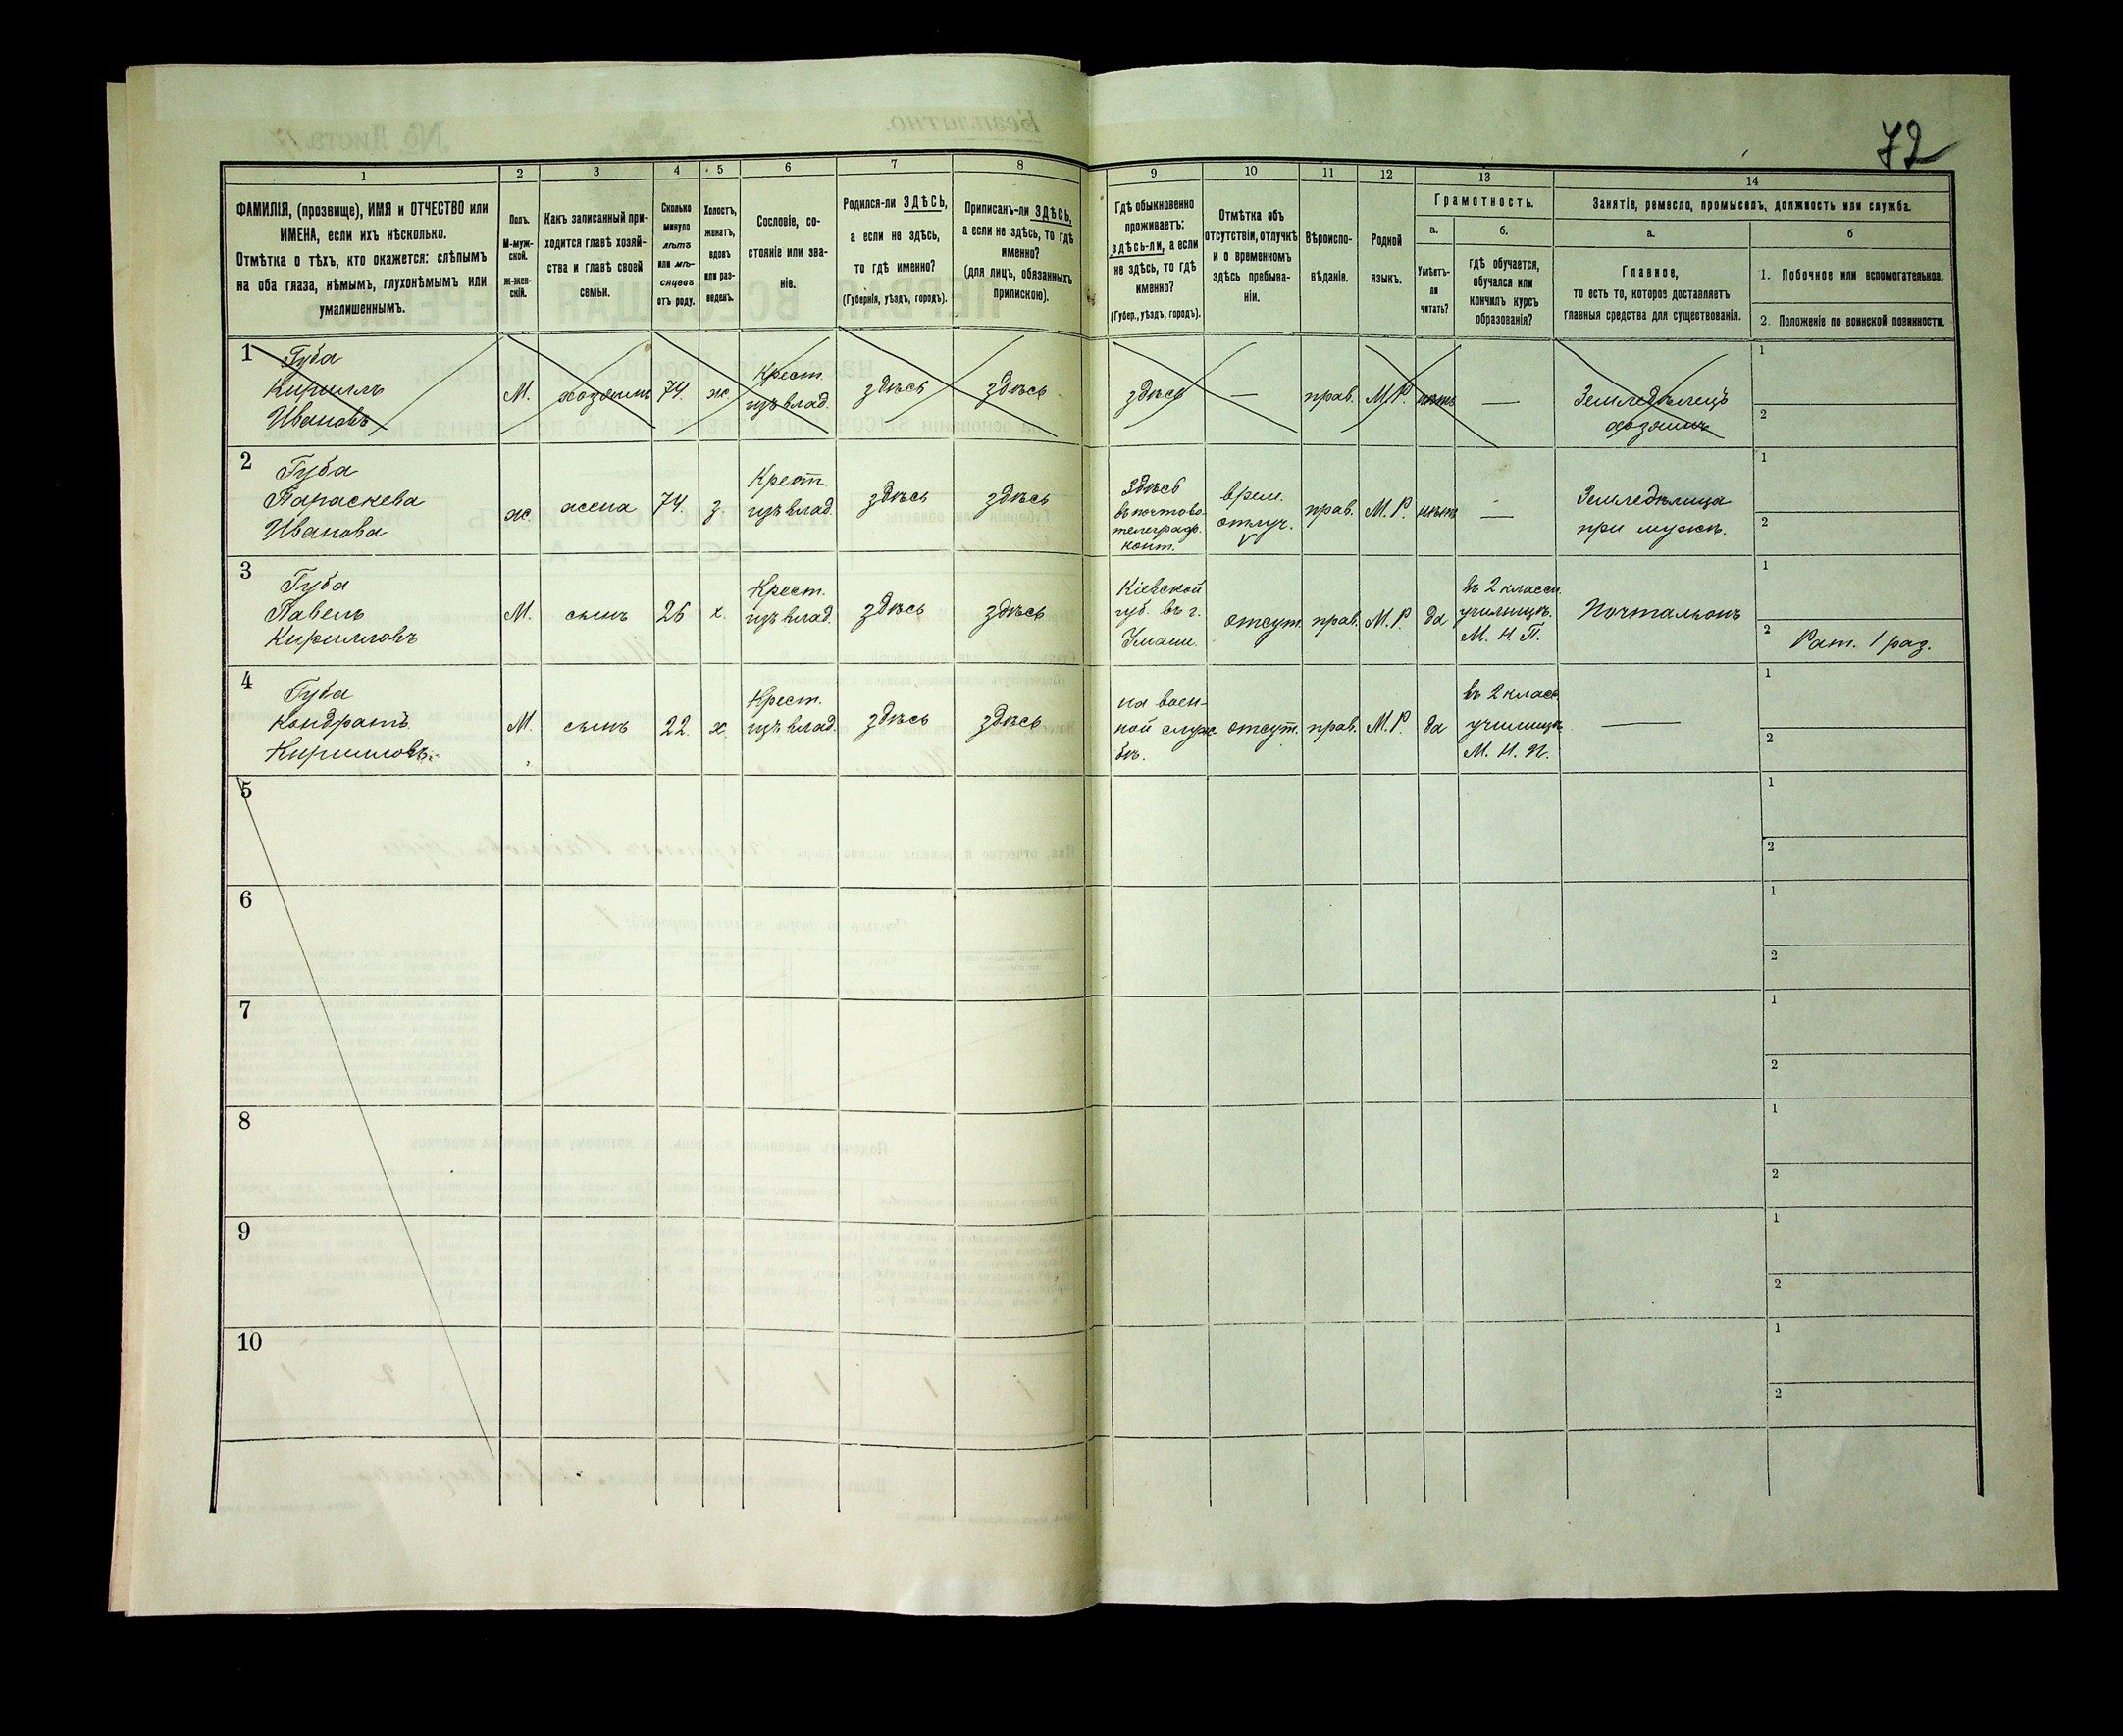 72
1
2
3
4
5
6
7
8
9
10
11
12
13
14
ФАМИЛІЯ, (прозвище), ИМЯ и ОТЧЕСТВО или
ИМЕНА, если ихъ нѣсколько.
Отмѣтка о тѣхъ, кто окажется: слѣпымъ
на оба глаза, нѣмымъ, глухонѣмымъ или
умалишеннымъ.
Полъ.
М-муж-
ской.
Ж-жен-
скій.
Какъ записанный при-
ходится главѣ хозяй-
ства и главѣ своей
семьи.
Сколько
минуло
лѣтъ
или мѣ-
сяцевъ
отъ роду.
Холостъ,
женатъ,
вдовъ
или раз-
веденъ.
Сословіе, со-
стояніе или зва-
ніе.
Родился-ли ЗДѢСЬ,
а если не здѣсь,
то гдѣ именно?
(Губернія, уѣздъ, городъ).
Приписанъ-ли ЗДѢСЬ,
а если не здѣсь, то гдѣ
именно?
(для лицъ, обязанныхъ
припискою).
Гдѣ обыкновенно
проживаетъ:
здѣсь-ли, а если
не здѣсь, то гдѣ
именно?
(Губер., уѣздъ, городъ).
Отмѣтка объ
отсутствіи, отлучкѣ
и о временномъ
здѣсь пребыва-
ніи.
Вѣроиспо-
вѣданіе.
Родной
языкъ.
Грамотность.
а.
Умѣетъ-
ли
читать?
б.
Гдѣ обучается,
обучался или
кончилъ курсъ
образованія?
Занятіе, ремесло, промыселъ, должность или служба.
а.
Главное,
то есть то, которое доставляетъ
главныя средства для существованія.
б
1. Побочное или вспомогательное.
2. Положеніе по воинской повинности.
1
Губа
Кириллъ
Ивановъ
М.
хозяинъ
74.
ж.
Крест.
изъ влад.
здѣсь
здѣсь
здѣсь
—
прав.
М.Р.
нѣтъ
—
Земледѣлецъ
хозяинъ
1
2
2
Губа
Параскева
Иванова
ж.
жена
74.
з.
Крест.
изъ влад.
здѣсь
здѣсь
здѣсь
въ почтово-
телеграф.
конт.
врем.
отлуч.
прав.
М.Р.
нѣтъ
—
Земледѣлица
при мужѣ.
1
2
3
Губа
Павелъ
Кирилловъ
М.
сынъ
26
х.
Крест.
изъ влад.
здѣсь
здѣсь
Кіевской
губ. въ г.
Умани.
отсут.
прав.
М.Р.
да
въ 2 класси.
училищѣ.
М. Н. П.
Почтальонъ
1
2
Рат. 1 раз.
4
Губа
Кондратъ
Кирилловъ.
М.
сынъ
22.
х.
Крест.
изъ влад.
здѣсь
здѣсь
на воен-
ной служ-
бѣ.
отсут.
прав.
М.Р.
да
въ 2 класс.
училищѣ
М. Н. П.
—
1
2
5
1
2
6
1
2
7
1
2
8
1
2
9
1
2
10
1
2